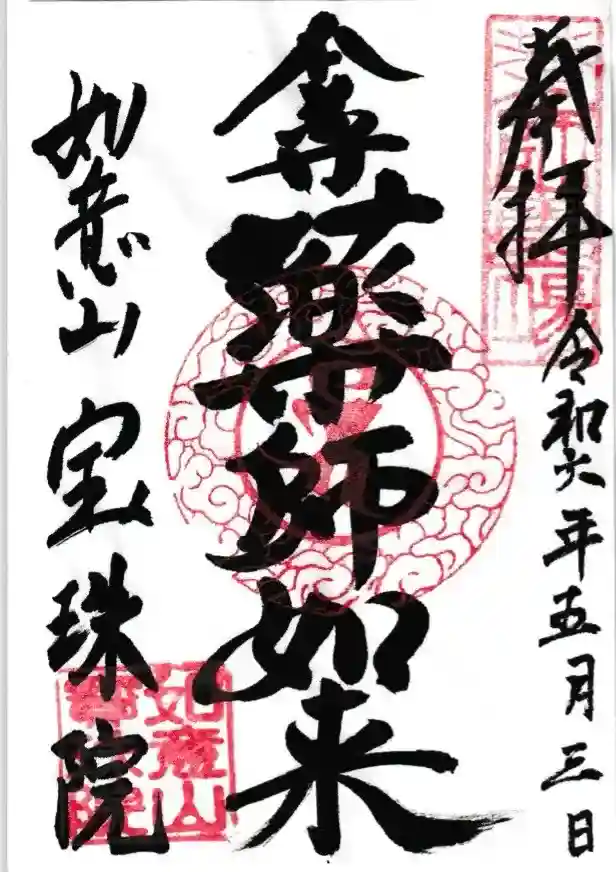 奉拝 令和六年五月三日
薬師如来
如意山 宝珠院
如意山